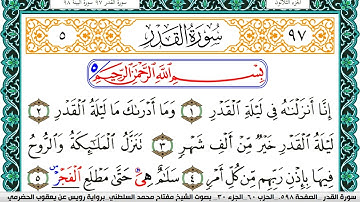 سورة القدر ٩٧ سورة البينة ٩٨
الجزء الثلاثون
٥ سُورَةُ الْقَدْرِ ٩٧
بِسْمِ اللَّهِ الرَّحْمَٰنِ الرَّحِيمِ
إِنَّا أَنزَلْنَاهُ فِي لَيْلَةِ الْقَدْرِ ١ وَمَا أَدْرَاكَ مَا لَيْلَةُ الْقَدْرِ ٢
لَيْلَةُ الْقَدْرِ خَيْرٌ مِنْ أَلْفِ شَهْرٍ ٣ تَنَزَّلُ الْمَلَائِكَةُ وَالرُّوحُ
فِيهَا بِإِذْنِ رَبِّهِم مِّن كُلِّ أَمْرٍ ٤ سَلَامٌ هِيَ حَتَّىٰ مَطْلَعِ الْفَجْرِ ٥
سورة القدر الصفحة ٥٩٨ الحزب ٦٠ الجزء ٣٠ بصوت الشيخ مفتاح محمد السلطني برواية رويس عن يعقوب الحضرمي